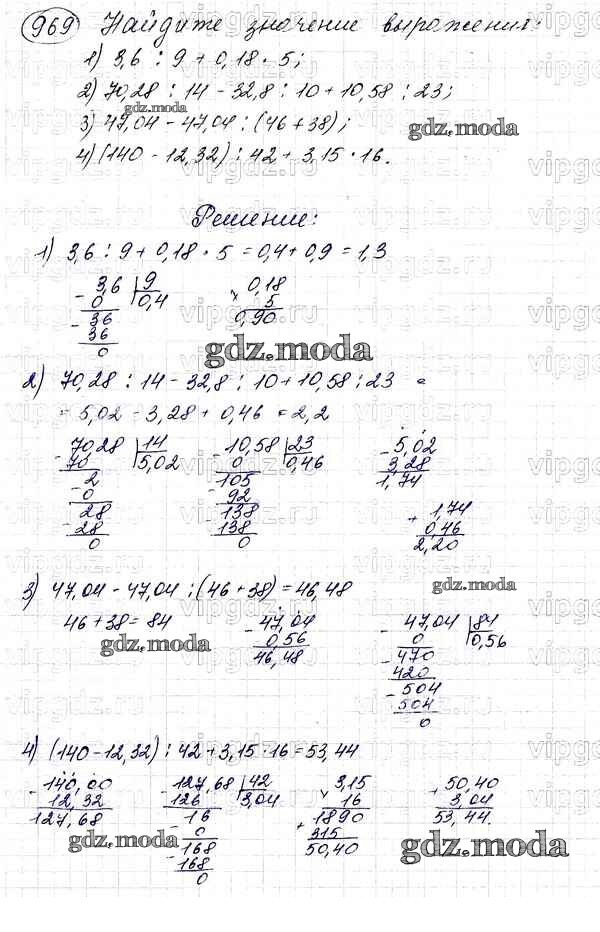 969 Найдите значение выражений:
1) 3,6 : 9 + 0,18 · 5;
2) 70,28 : 14 - 32,8 : 10 + 10,58 : 23;
3) 47,04 - 47,04 : (46 + 38);
4) (140 - 12,32) : 42 + 3,15 · 16.
Решение:
1) 3,6 : 9 + 0,18 · 5 = 0,4 + 0,9 = 1,3
- 3,6 | 9
0 | 0,4
- 36
36
0
× 0,18
5
0,90
2) 70,28 : 14 - 32,8 : 10 + 10,58 : 23 =
= 5,02 - 3,28 + 0,46 = 2,2
- 70,28 | 14
70 | 5,02
- 2
0
- 28
28
0
- 10,58 | 23
0 | 0,46
- 105
92
- 138
138
0
- 5,02
3,28
1,74
+ 1,74
0,46
2,20
3) 47,04 - 47,04 : (46 + 38) = 46,48
46 + 38 = 84
- 47,04
0,56
46,48
- 47,04 | 84
0 | 0,56
- 470
420
- 504
504
0
4) (140 - 12,32) : 42 + 3,15 · 16 = 53,44
- 140,00
12,32
127,68
- 127,68 | 42
126 | 3,04
- 16
0
- 168
168
0
× 3,15
16
1890
+ 315
50,40
+ 50,40
3,04
53,44.
gdz.moda
gdz.moda
gdz.moda
gdz.moda
gdz.moda
gdz.moda
gdz.moda
vipgdz.ru